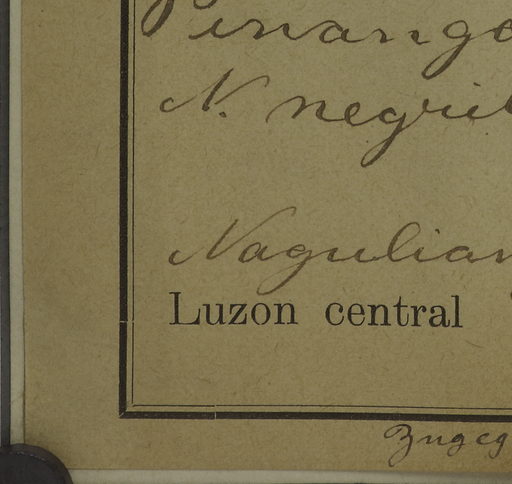 Pinang
N. negri
Nagulian
Luzon central
Zugeg